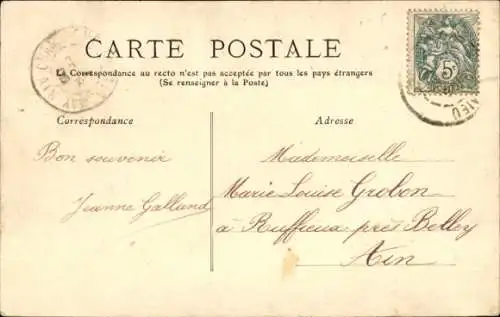 CARTE POSTALE
La Correspondance au recto n'est pas acceptée par tous les pays étrangers
(Se renseigner à la Poste)
Correspondance
Adresse
Bon souvenir
Jeanne Galland
Mademoiselle
Marie Louise Grobon
à Ruffieux près Belley
Ain
5